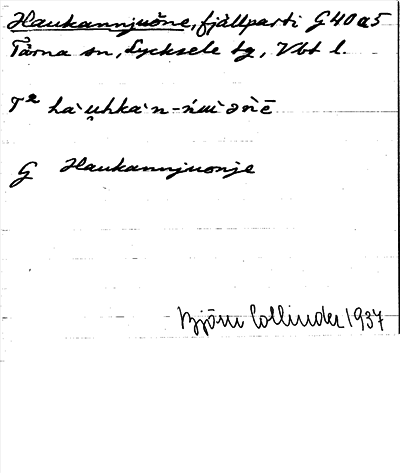 Haukannjuone, fjällparti G40a5
Tärna sn, Lycksele lg, Vbt l.
G Haukannjuonje
Björn Collinder 1937